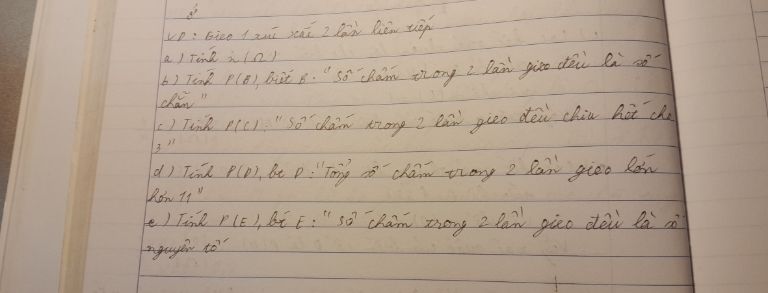 VD: Gieo 1 xúc xắc 2 lần liên tiếp
a) Tính n(Ω)
b) Tính P(B), biết B: "Số chấm trong 2 lần gieo đều là số
chẵn"
c) Tính P(C): "Số chấm trong 2 lần gieo đều chia hết cho
3"
d) Tính P(D), bt D: "Tổng số chấm trong 2 lần gieo lớn
hơn 11"
e) Tính P(E), bt E: "Số chấm trong 2 lần gieo đều là số
nguyên tố